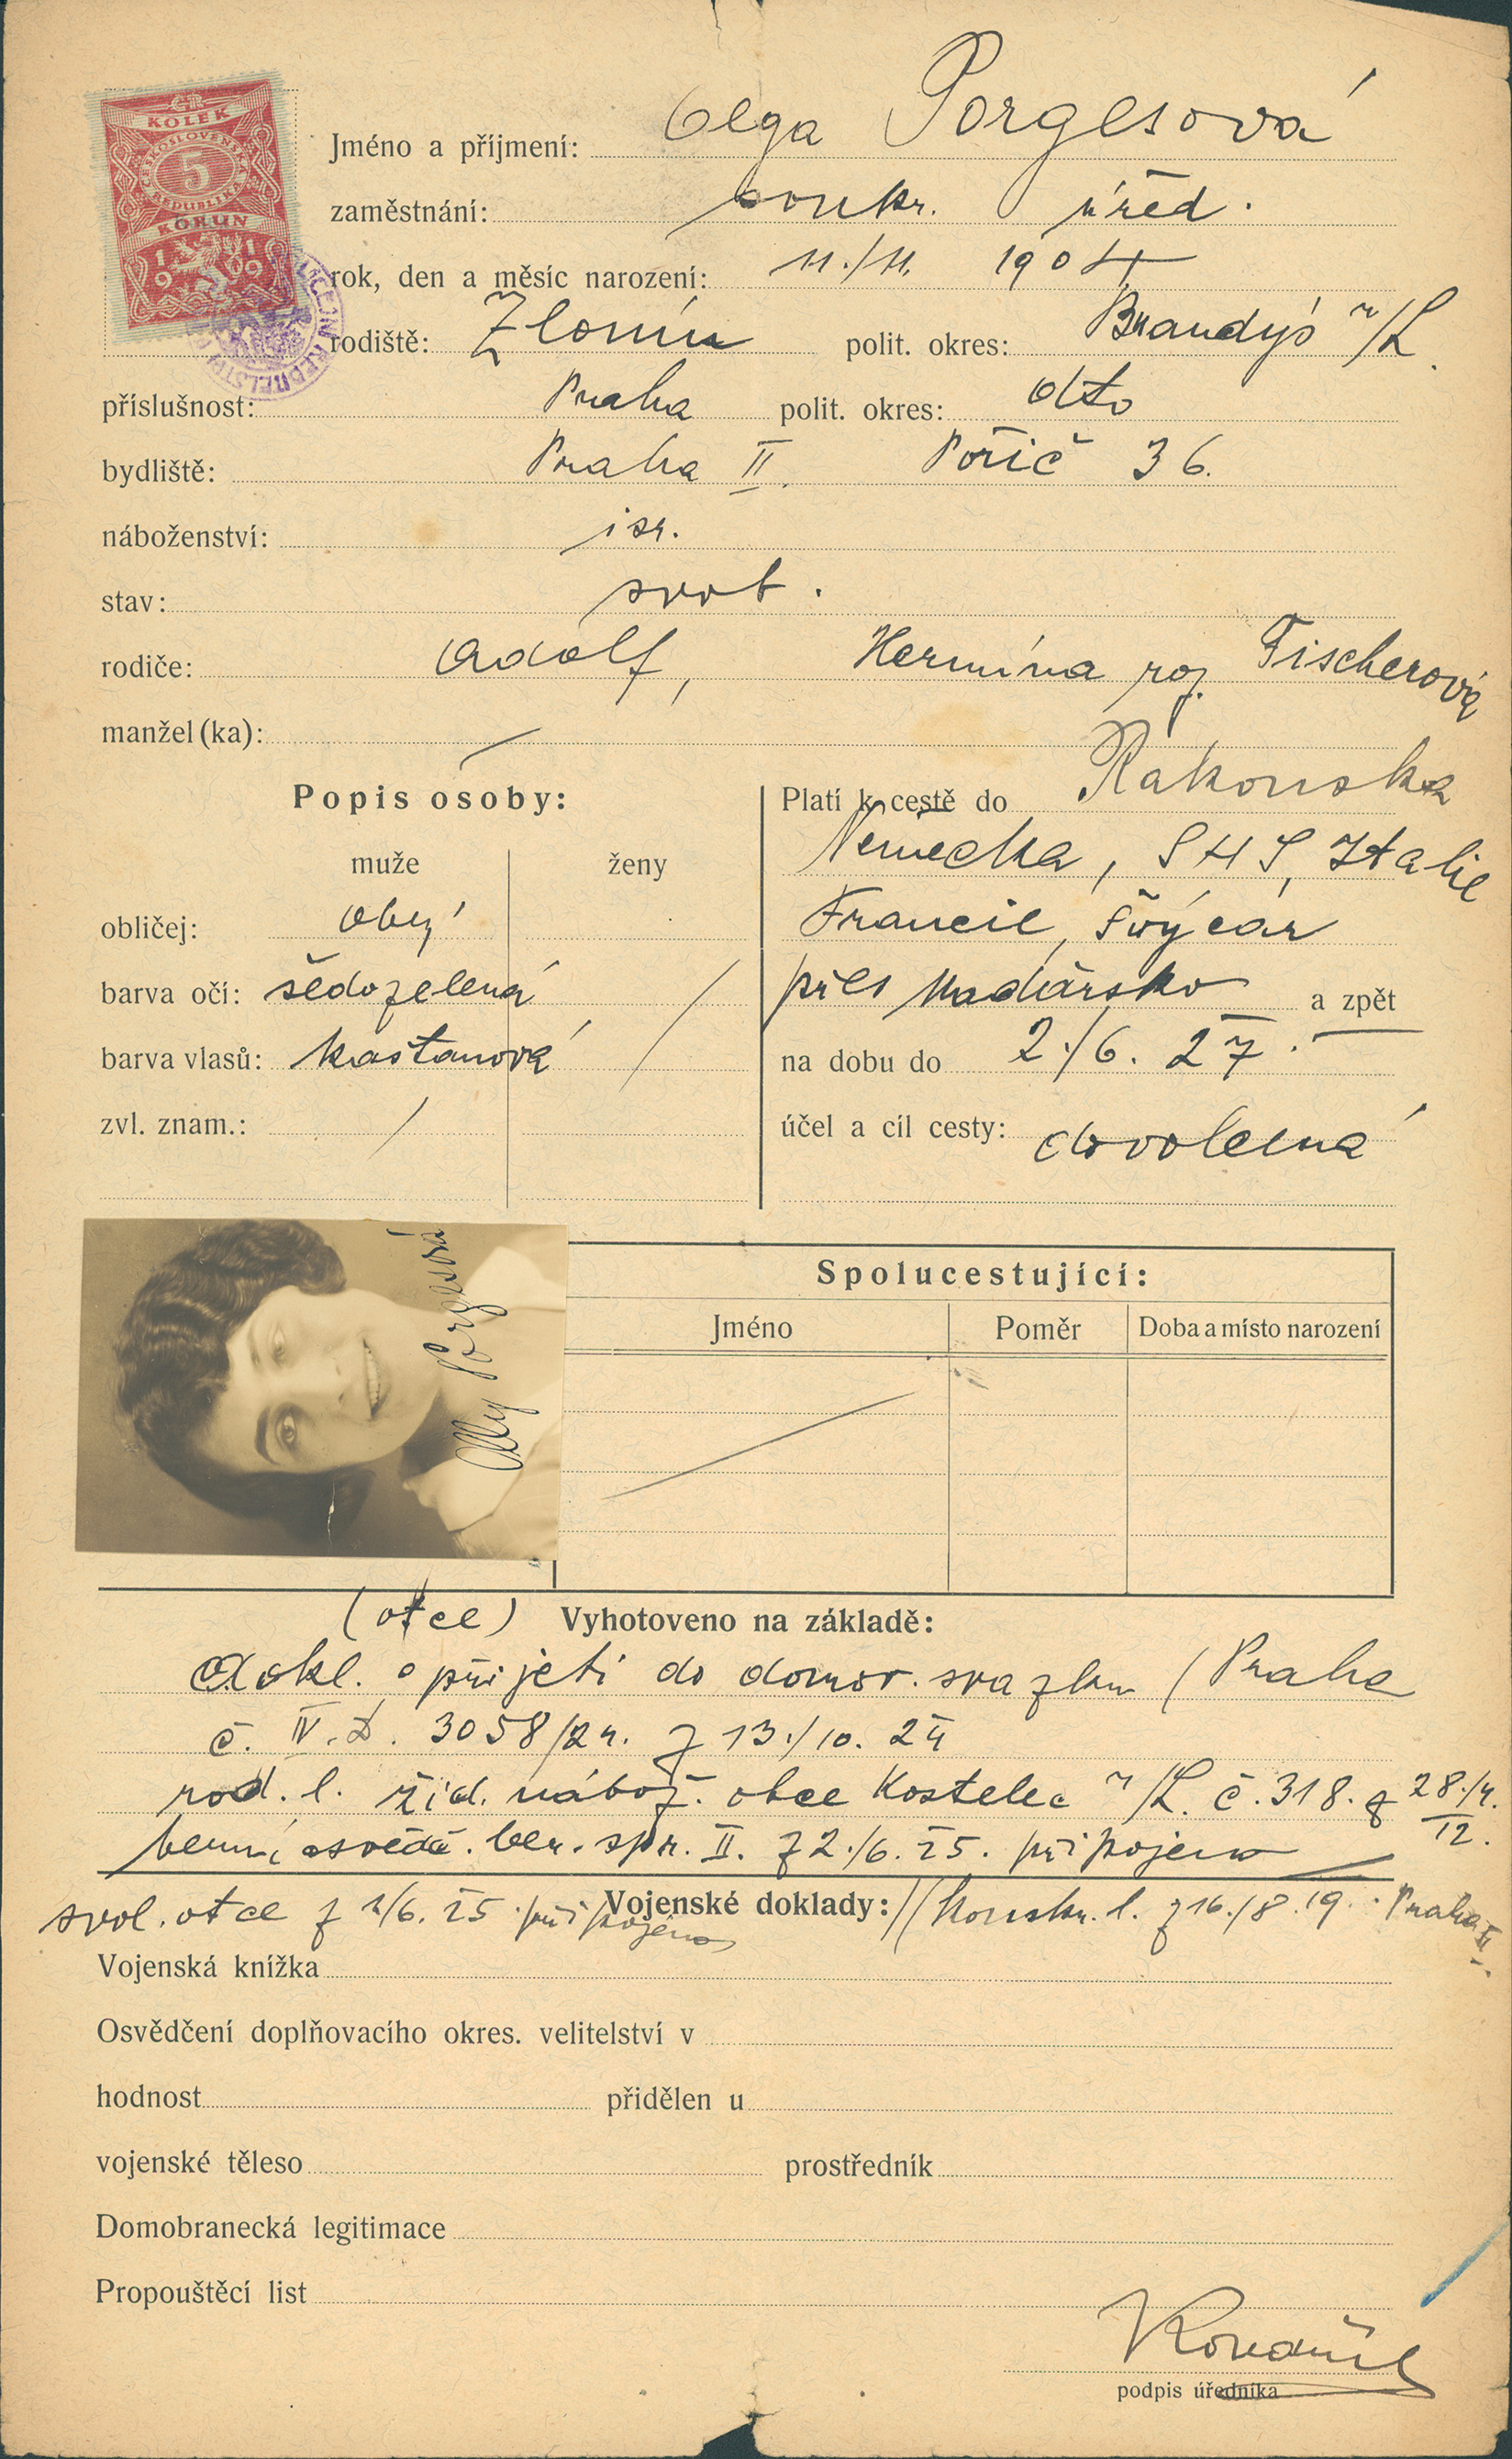 ČR
KOLEK
ČESKOSLOVENSKÁ
5
REPUBLIKA
KORUN
1919
Jméno a příjmení: Olga Porgesová
zaměstnání: soukr. úřed.
rok, den a měsíc narození: 11./11. 1904
rodiště: Zlonín polit. okres: Brandýs n/L.
příslušnost: Praha polit. okres: dto
bydliště: Praha II. Poříč 36.
náboženství: isr.
stav: svob.
rodiče: Adolf, Hermína roz. Fischerová
manžel(ka): —
Popis osoby:
muže ženy
obličej: obyč
barva očí: šedozelená
barva vlasů: kaštanová
zvl. znam.: /
Platí k cestě do Rakouska
Německa, SHS, Italie
Francie, Švýcar
přes Maďarsko a zpět
na dobu do 2./6. 27.
účel a cíl cesty: dovolená
Olly Porgesová
Spolucestující:
Jméno Poměr Doba a místo narození
(otce) Vyhotoveno na základě:
dokl. o přijetí do domov. svazku (Praha
č. IV.D. 3058/24. z 13./10. 24
rod. l. žid. nábož. obce Kostelec n/L. č. 318. z 28./4.
12.
berní osvědč. ber. spr. II. z 2./6. 25. připojeno
svol. otce z 2/6. 25 připojeno Vojenské doklady: // Konskr. l. z 16./8. 19. Praha II.
Vojenská knížka
Osvědčení doplňovacího okres. velitelství v
hodnost přidělen u
vojenské těleso prostředník
Domobranecká legitimace
Propouštěcí list
podpis úředníka